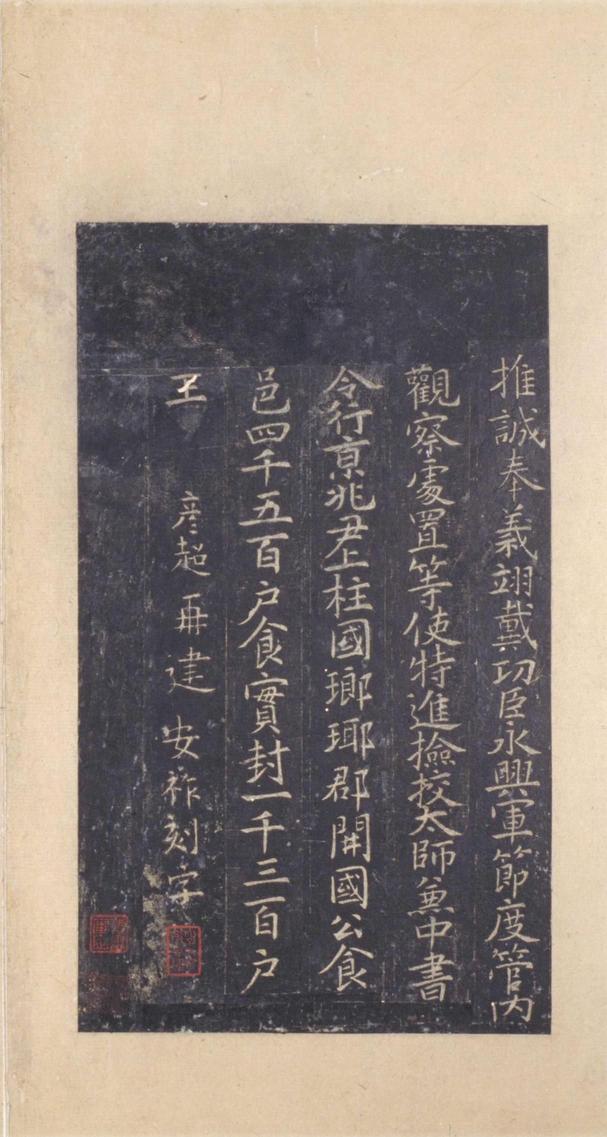 推誠奉義翊戴功臣永興軍節度管內
觀察處置等使特進撿挍太師兼中書
令行京兆尹上柱國瑯琊郡開國公食
邑四千五百戶食實封一千三百戶
王 彥超再建 安祚刻字